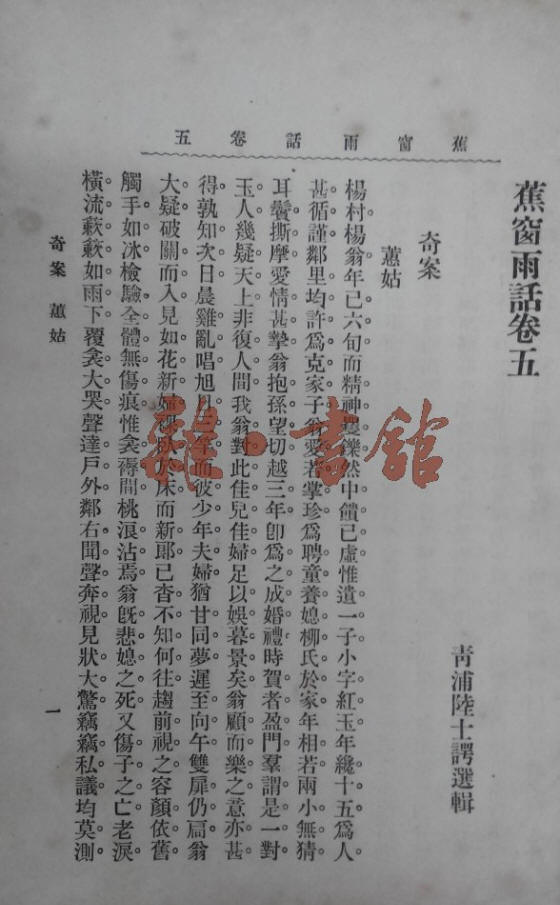 蕉窗雨話卷五
蕉窗雨話卷五
青浦陸士諤選輯
奇案
蕙姑
楊村楊翁年已六旬而精神矍鑠然中饋已虛惟遺一子小字紅玉年纔十五爲人
甚循謹鄰里均許爲克家子翁愛若掌珍爲聘童養媳柳氏於家年相若兩小無猜
耳鬢撕摩愛情甚摯翁抱孫望切越三年卽爲之成婚禮時賀者盈門羣謂是一對
玉人幾疑天上非復人間我翁對此佳兒佳婦足以娛暮景矣翁顧而樂之意亦甚
得孰知次日晨雞亂唱旭日三竿而彼少年夫婦猶甘同夢遲至向午雙扉仍扃翁
大疑破關而入見如花新婦 臥於床而新郞已杳不知何往趨前視之容顏依舊
觸手如冰檢驗全體無傷痕惟衾褥間桃浪沾焉翁旣悲媳之死又傷子之亡老淚
橫流簌簌如雨下覆衾大哭聲達戶外鄰右聞聲奔視見狀大驚竊竊私議均莫測
奇案 蕙姑
一
雜·書館